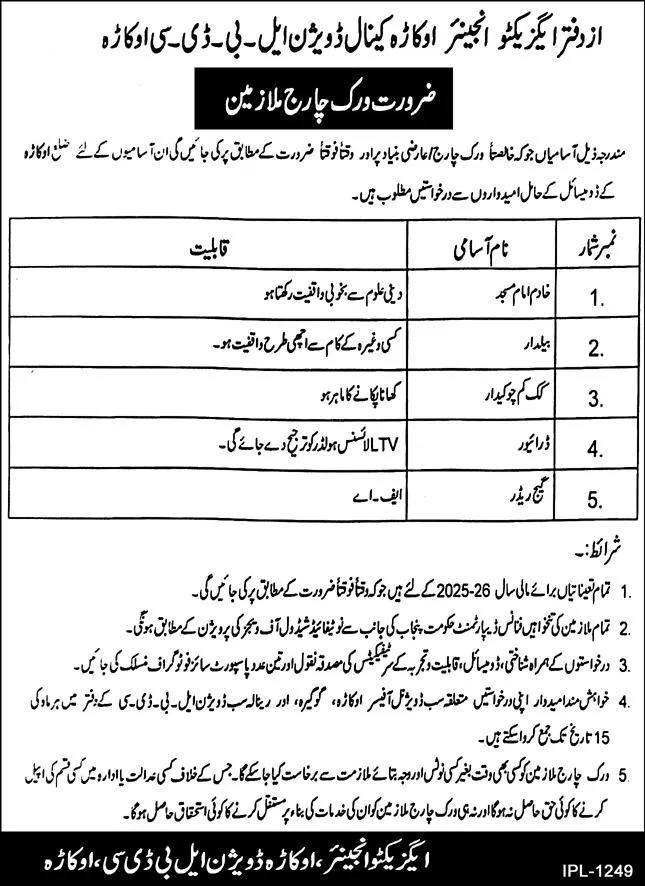 از دفتر ایگزیکٹو انجینئر اوکاڑہ کینال ڈویژن ایل۔بی۔ڈی۔سی اوکاڑہ
ضرورت ورک چارج ملازمین
مندرجہ ذیل آسامیاں جو کہ خالصتاً ورک چارج/عارضی بنیاد پر اور وقتاً فوقتاً ضرورت کے مطابق پر کی جائیں گی ان آسامیوں کے لئے ضلع اوکاڑہ
کے ڈومیسائل کے حامل امیدواروں سے درخواستیں مطلوب ہیں۔
نمبر شمار نام آسامی قابلیت
1. خادم امام مسجد دینی علوم سے بخوبی واقفیت رکھتا ہو
2. بیلدار کسی وغیرہ کے کام سے اچھی طرح واقفیت ہو۔
3. کک کم چوکیدار کھانا پکانے کا ماہر ہو
4. ڈرائیور LTV لائسنس ہولڈر کو ترجیح دے جائے گی۔
5. گیج ریڈر ایف۔اے
شرائط:۔
1. تمام تعیناتیاں برائے مالی سال 2025-26 کے لئے ہیں جو کہ وقتاً فوقتاً ضرورت کے مطابق پر کی جائیں گی۔
2. تمام ملازمین کی تنخواہیں فنانس ڈیپارٹمنٹ حکومت پنجاب کی جانب سے نوٹیفائیڈ شیڈول آف ویجز کی پرویژن کے مطابق ہونگی۔
3. درخواستوں کے ہمراہ شناختی، ڈومیسائل، قابلیت و تجربہ کے سرٹیفکیٹس کی مصدقہ نقول اور تین عدد پاسپورٹ سائز فوٹو گراف منسلک کی جائیں۔
4. خواہش مند امیدوار اپنی درخواستیں متعلقہ سب ڈویژنل آفیسر اوکاڑہ، گوگیرہ، اور رینالہ سب ڈویژن ایل۔بی۔ڈی۔سی کے دفتر میں ہر ماہ کی
15 تاریخ تک جمع کروا سکتے ہیں۔
5. ورک چارج ملازمین کو کسی بھی وقت بغیر کسی نوٹس اور وجہ بتائے ملازمت سے برخاست کیا جا سکے گا۔ جس کے خلاف کسی عدالت یا ادارہ میں کسی قسم کی اپیل
کرنے کا کوئی حق حاصل نہ ہوگا اور نہ ہی ورک چارج ملازمین کو ان کی خدمات کی بناء پر مستقل کرنے کا کوئی استحقاق حاصل ہوگا۔
ایگزیکٹو انجینئر، اوکاڑہ ڈویژن ایل بی ڈی سی، اوکاڑہ
IPL-1249